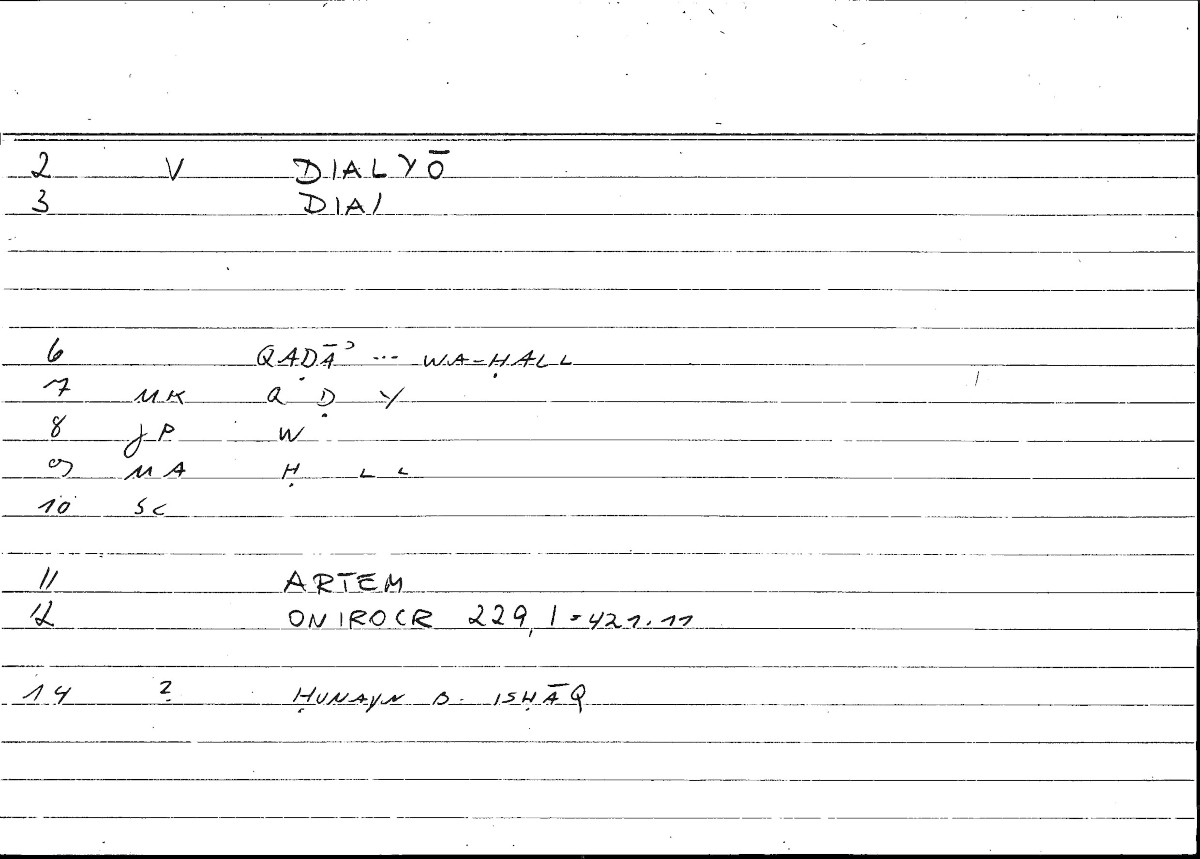 2 V DIALYŌ
3 DIAL
6 QAḌĀʾ ... WA-ḤALL
7 MK Q Ḍ Y
8 JP W
9 MA Ḥ L L
10 SC
11 ARTEM
12 ONIROCR 229,1=421.11
14 2 ḤUNAYN B. ISḤĀQ